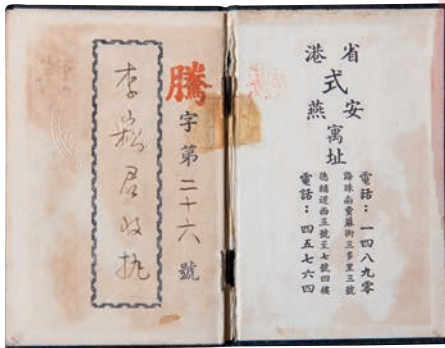 省港
式
安燕
寓址
電話：一四八九零
海珠南賣麻街三多里三號
德輔道西五號至七號四樓
電話：四五七六四
騰字第二十六號
李崧君收執